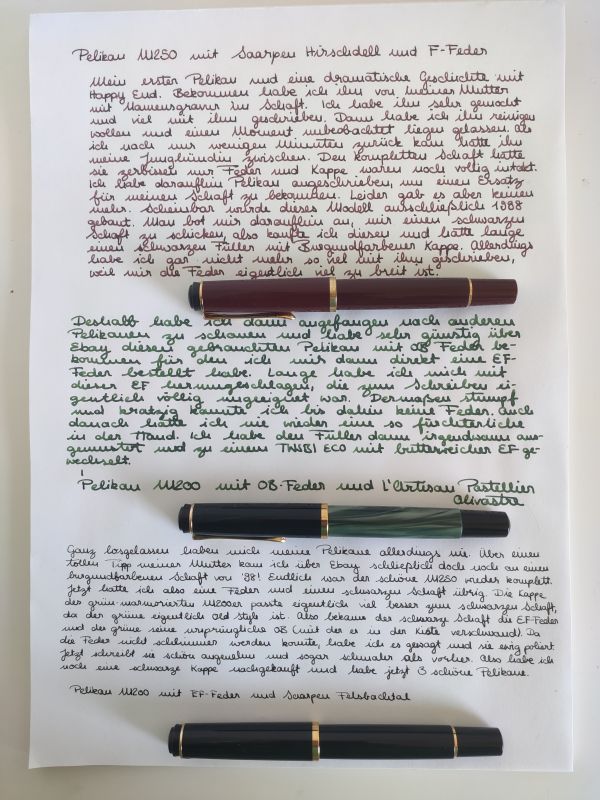 Pelikan M250 mit Saarpen Hirschdell und F-Feder
Mein erster Pelikan und eine dramatische Geschichte mit
Happy End. Bekommen habe ich ihn von meiner Mutter
mit Namensgravur im Schaft. Ich habe ihn sehr gemocht
und viel mit ihm geschrieben. Dann habe ich ihn reinigen
wollen und einen Moment unbeobachtet liegen gelassen. Als
ich nach nur wenigen Minuten zurück kam hatte ihn
meine Junghündin zwischen. Den kompletten Schaft hatte
sie zerbissen nur Feder und Kappe waren noch völlig intakt.
Ich habe daraufhin Pelikan angeschrieben, um einen Ersatz
für meinen Schaft zu bekommen. Leider gab es aber keinen
mehr. Scheinbar wurde dieses Modell ausschließlich 1988
gebaut. Man bot mir daraufhin an, mir einen schwarzen
Schaft zu schicken, also kaufte ich diesen und hatte lange
einen schwarzen Füller mit Burgundfarbener Kappe. Allerdings
habe ich gar nicht mehr so viel mit ihm geschrieben,
weil mir die Feder eigentlich viel zu breit ist.
Deshalb habe ich dann angefangen nach anderen
Pelikanen zu schauen und habe sehr günstig über
Ebay diesen gebrauchten Pelikan mit OB Feder be-
kommen für den ich mir dann direkt eine EF-
Feder bestellt habe. Lange habe ich mich mit
dieser EF herumgeschlagen, die zum Schreiben ei-
gentlich völlig ungeeignet war. Dermaßen stumpf
und kratzig kannte ich bis dahin keine Feder. Auch
danach hatte ich nie wieder eine so fürchterliche
in der Hand. Ich habe den Füller dann irgendwann aus-
gemustert und zu einem TWSBI ECO mit butterweicher EF ge-
wechselt.
Pelikan M200 mit OB-Feder und L'Artisan Pastellier
Olivastre
Ganz losgelassen haben mich meine Pelikane allerdings nie. Über einen
tollen Tipp meiner Mutter kam ich über Ebay schließlich doch noch an einen
burgundfarbenen Schaft von '88! Endlich war der schöne M250 wieder komplett.
Jetzt hatte ich also eine Feder und einen schwarzen Schaft übrig. Die Kappe
des grün-marmorierten M200er passte eigentlich viel besser zum schwarzen Schaft,
da der grüne eigentlich old style ist. Also bekam der schwarze Schaft die EF-Feder
und der grüne seine ursprüngliche OB (mit der er in der Kiste verschwand). Da
die Feder nicht schlimmer werden konnte, habe ich es gewagt und sie ewig poliert.
Jetzt schreibt sie schön angenehm und sogar schmaler als vorher. Also habe ich
noch eine schwarze Kappe nachgekauft und habe jetzt 3 schöne Pelikane.
Pelikan M200 mit EF-Feder und Saarpen Felsbachtal